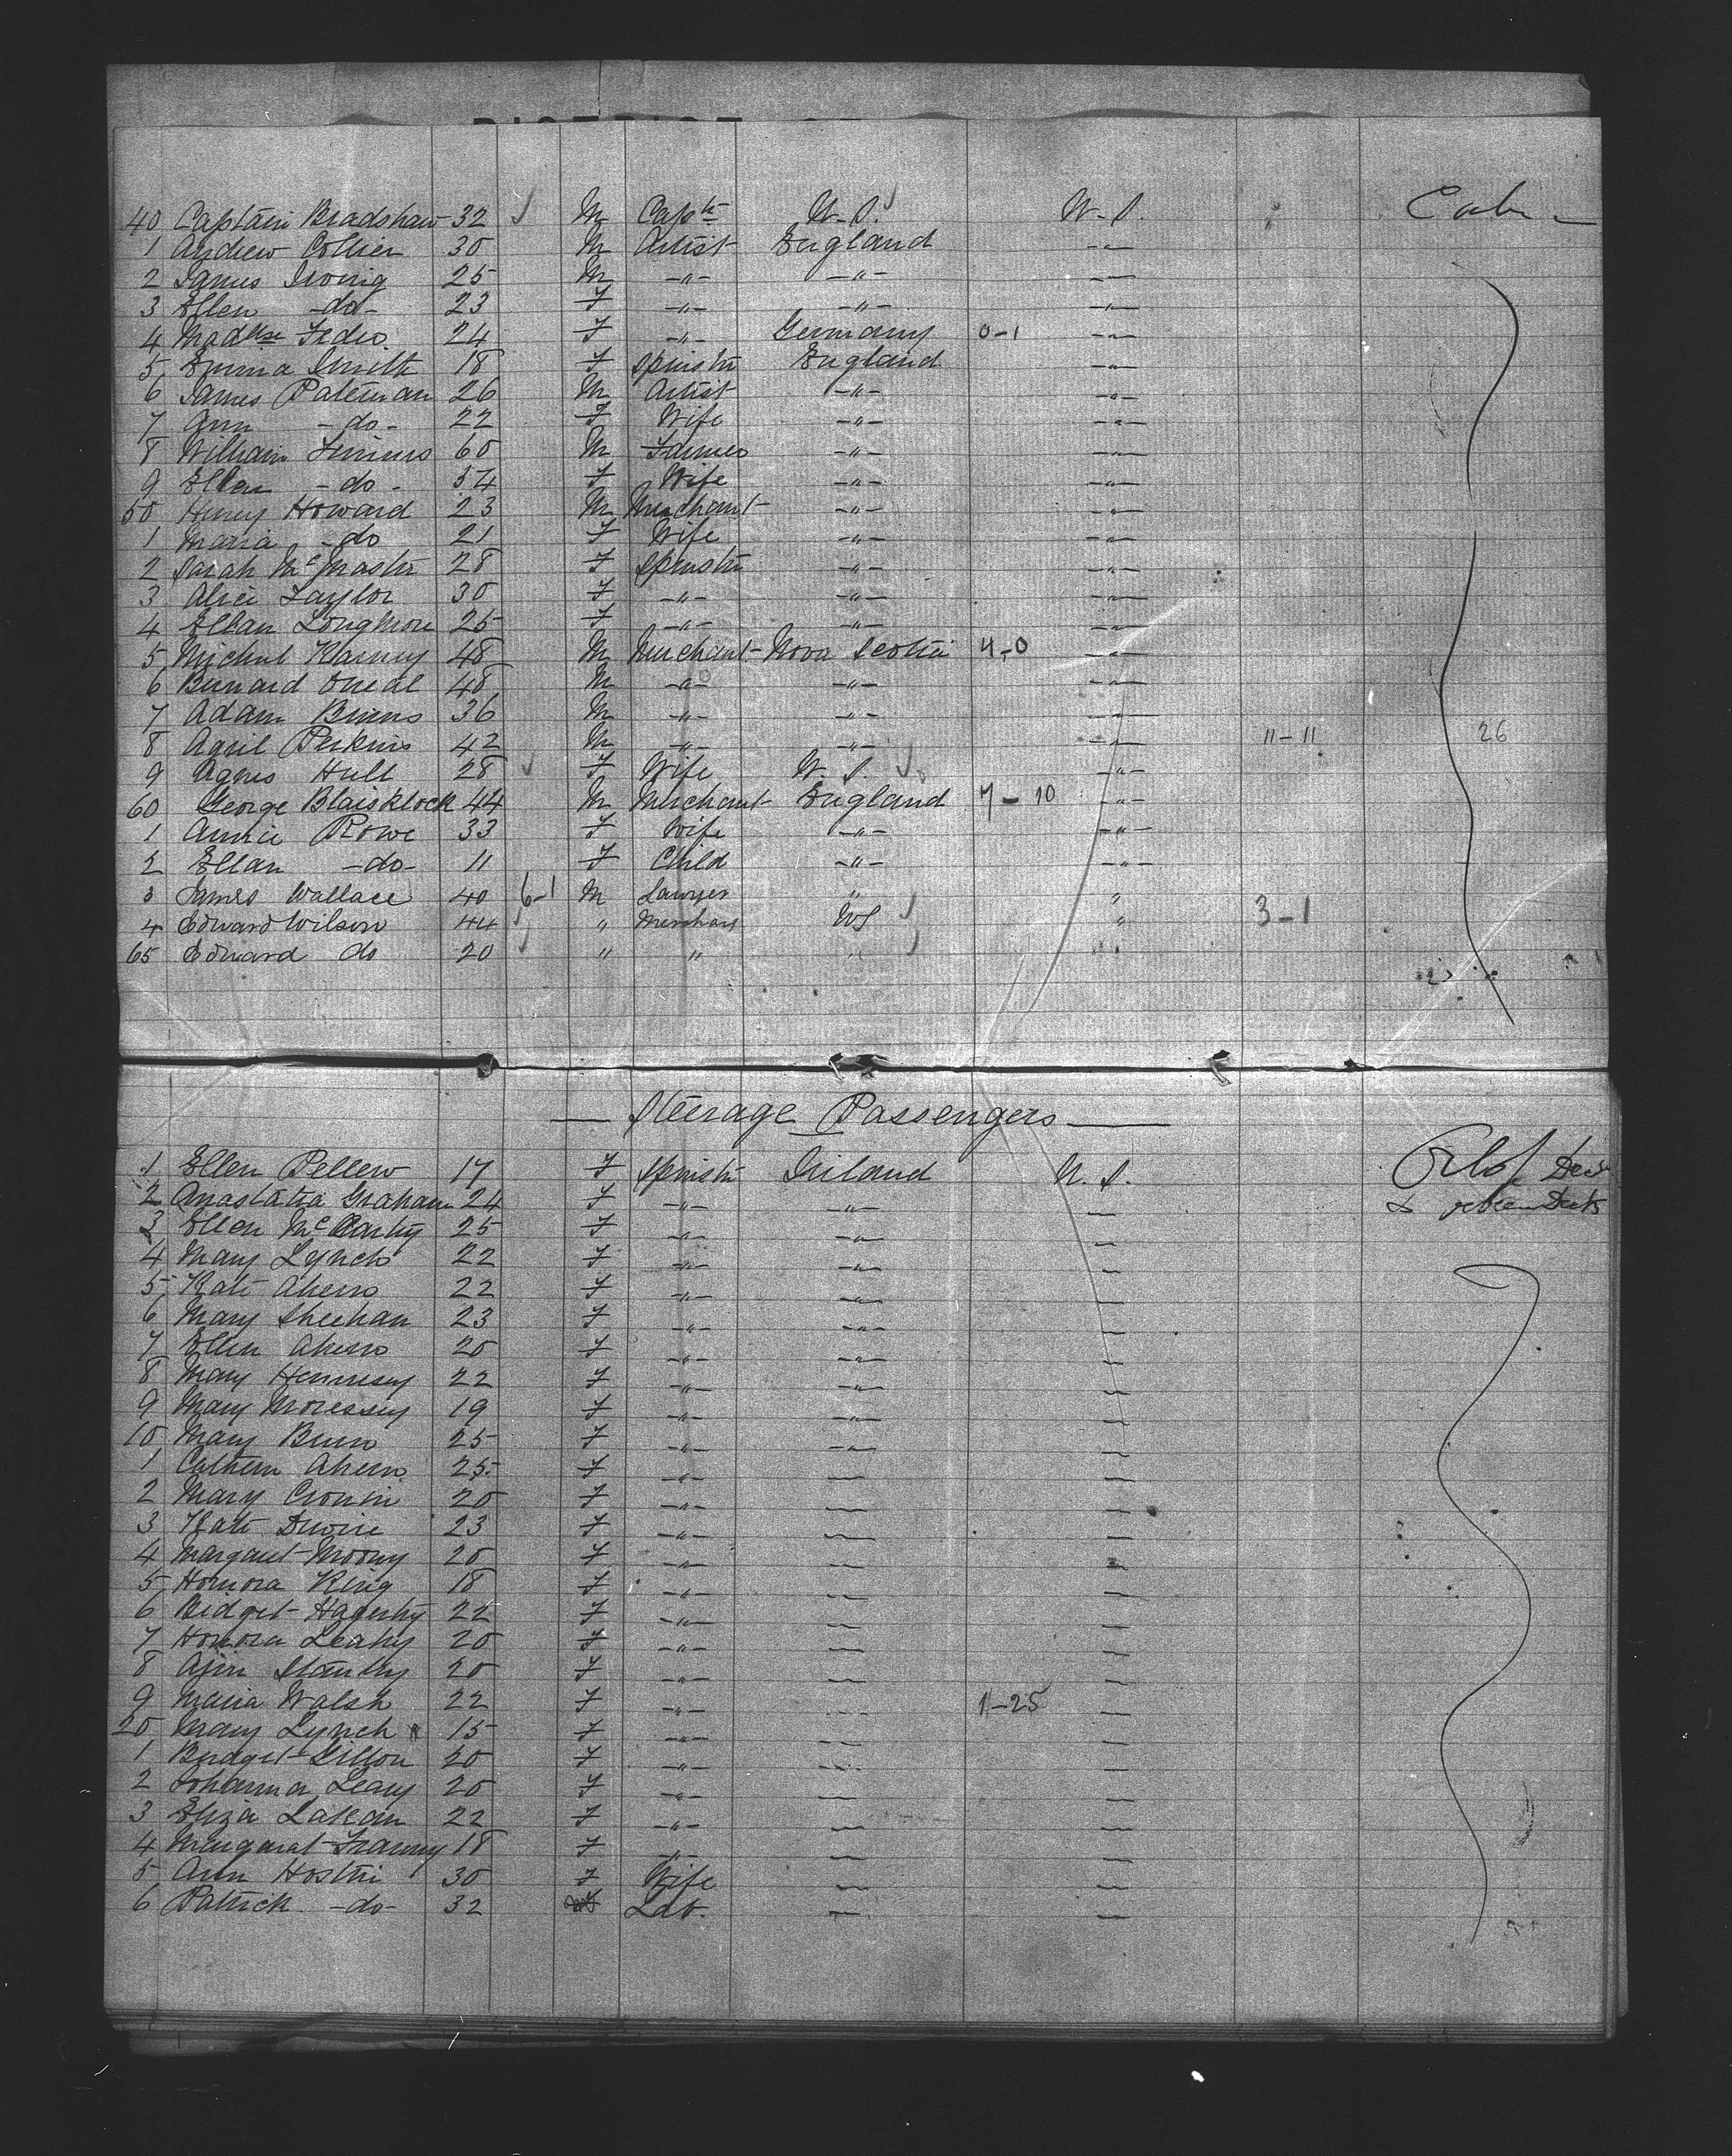 40 Captain Bradshaw 32 M Capt U.S. U.S. Cabin
1 Andrew Collier 30 M Artist England -"-
2 James Irving 25 M -"- -"- -"-
3 Ellen -do- 23 F -"- -"- -"-
4 24 F -"- Germany 0-1 -"-
5 Emma Smith 18 F Spinstr England -"-
6 James Pateman 26 M Artist -"- -"-
7 Ann -do- 22 F Wife -"- -"-
8 William 60 M Farmer -"- -"-
9 Ellen -do- 54 F Wife -"- -"-
50 Henry Howard 23 M Merchant -"- -"-
1 Maria -do 21 F Wife -"- -"-
2 Sarah McMastr 28 F Spinstr -"- -"-
3 Alice Taylor 30 F -"- -"- -"-
4 Ellan Longmore 25 F -"- -"- -"-
5 Michal Karney 48 M Merchant Nova Scotia 4-0 -"-
6 Bernard Oneal 48 M -"- -"- -"-
7 Adam Burns 36 M -"- -"- -"-
8 April Perkins 42 M -"- -"- -"- 11-11 26
9 Agnes Hull 28 F Wife U.S. -"-
60 George Blaisklock 44 M Merchant England 7-10 -"-
1 Annie Rowe 33 F Wife -"- -"-
2 Ellan -do- 11 F Child -"- -"-
3 James Wallace 40 6-1 M Lawyer " "
4 Edward Wilson 44 " Merchant US " 3-1
65 Edward do 20 " " " "
Steerage Passengers
1 Ellen Pellew 17 F Spinstr Ireland U.S. Orlop Deck
2 Anastatia Graham 24 F -"- -"- & between Decks
3 Ellen McCarthy 25 F -"- -"-
4 Mary Lynch 22 F -"- -"-
5 Kate Ahern 22 F -"- -"-
6 Mary Sheehan 23 F -"- -"-
7 Ellen Ahern 20 F -"- -"-
8 Mary Hennesy 22 F -"- -"-
9 Mary Moressey 19 F -"- -"-
10 Mary 25 F -"- -"-
1 Cathern Ahern 25 F -"-
2 Mary Cronin 20 F -"-
3 Kate Devine 23 F -"-
4 Margaret Moony 20 F -"-
5 Honora King 18 F -"-
6 Bidget Hagerty 22 F -"-
7 Honora Leahy 20 F -"-
8 Ann Stanley 20 F -"-
9 Maria Walsh 22 F -"- 1-25
20 Mary Lynch 15 F -"-
1 Bridget Dillon 20 F -"-
2 Johanna Leary 20 F -"-
3 Eliza Lakean 22 F -"-
4 Margarat 18 F -"-
5 Ann 30 F Wife
6 Patrick -do- 32 Lab.